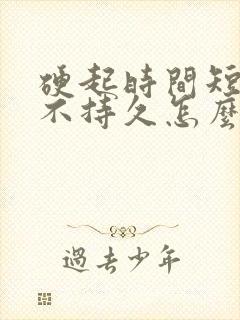 硬起時間短
不持久怎麼
過去少年